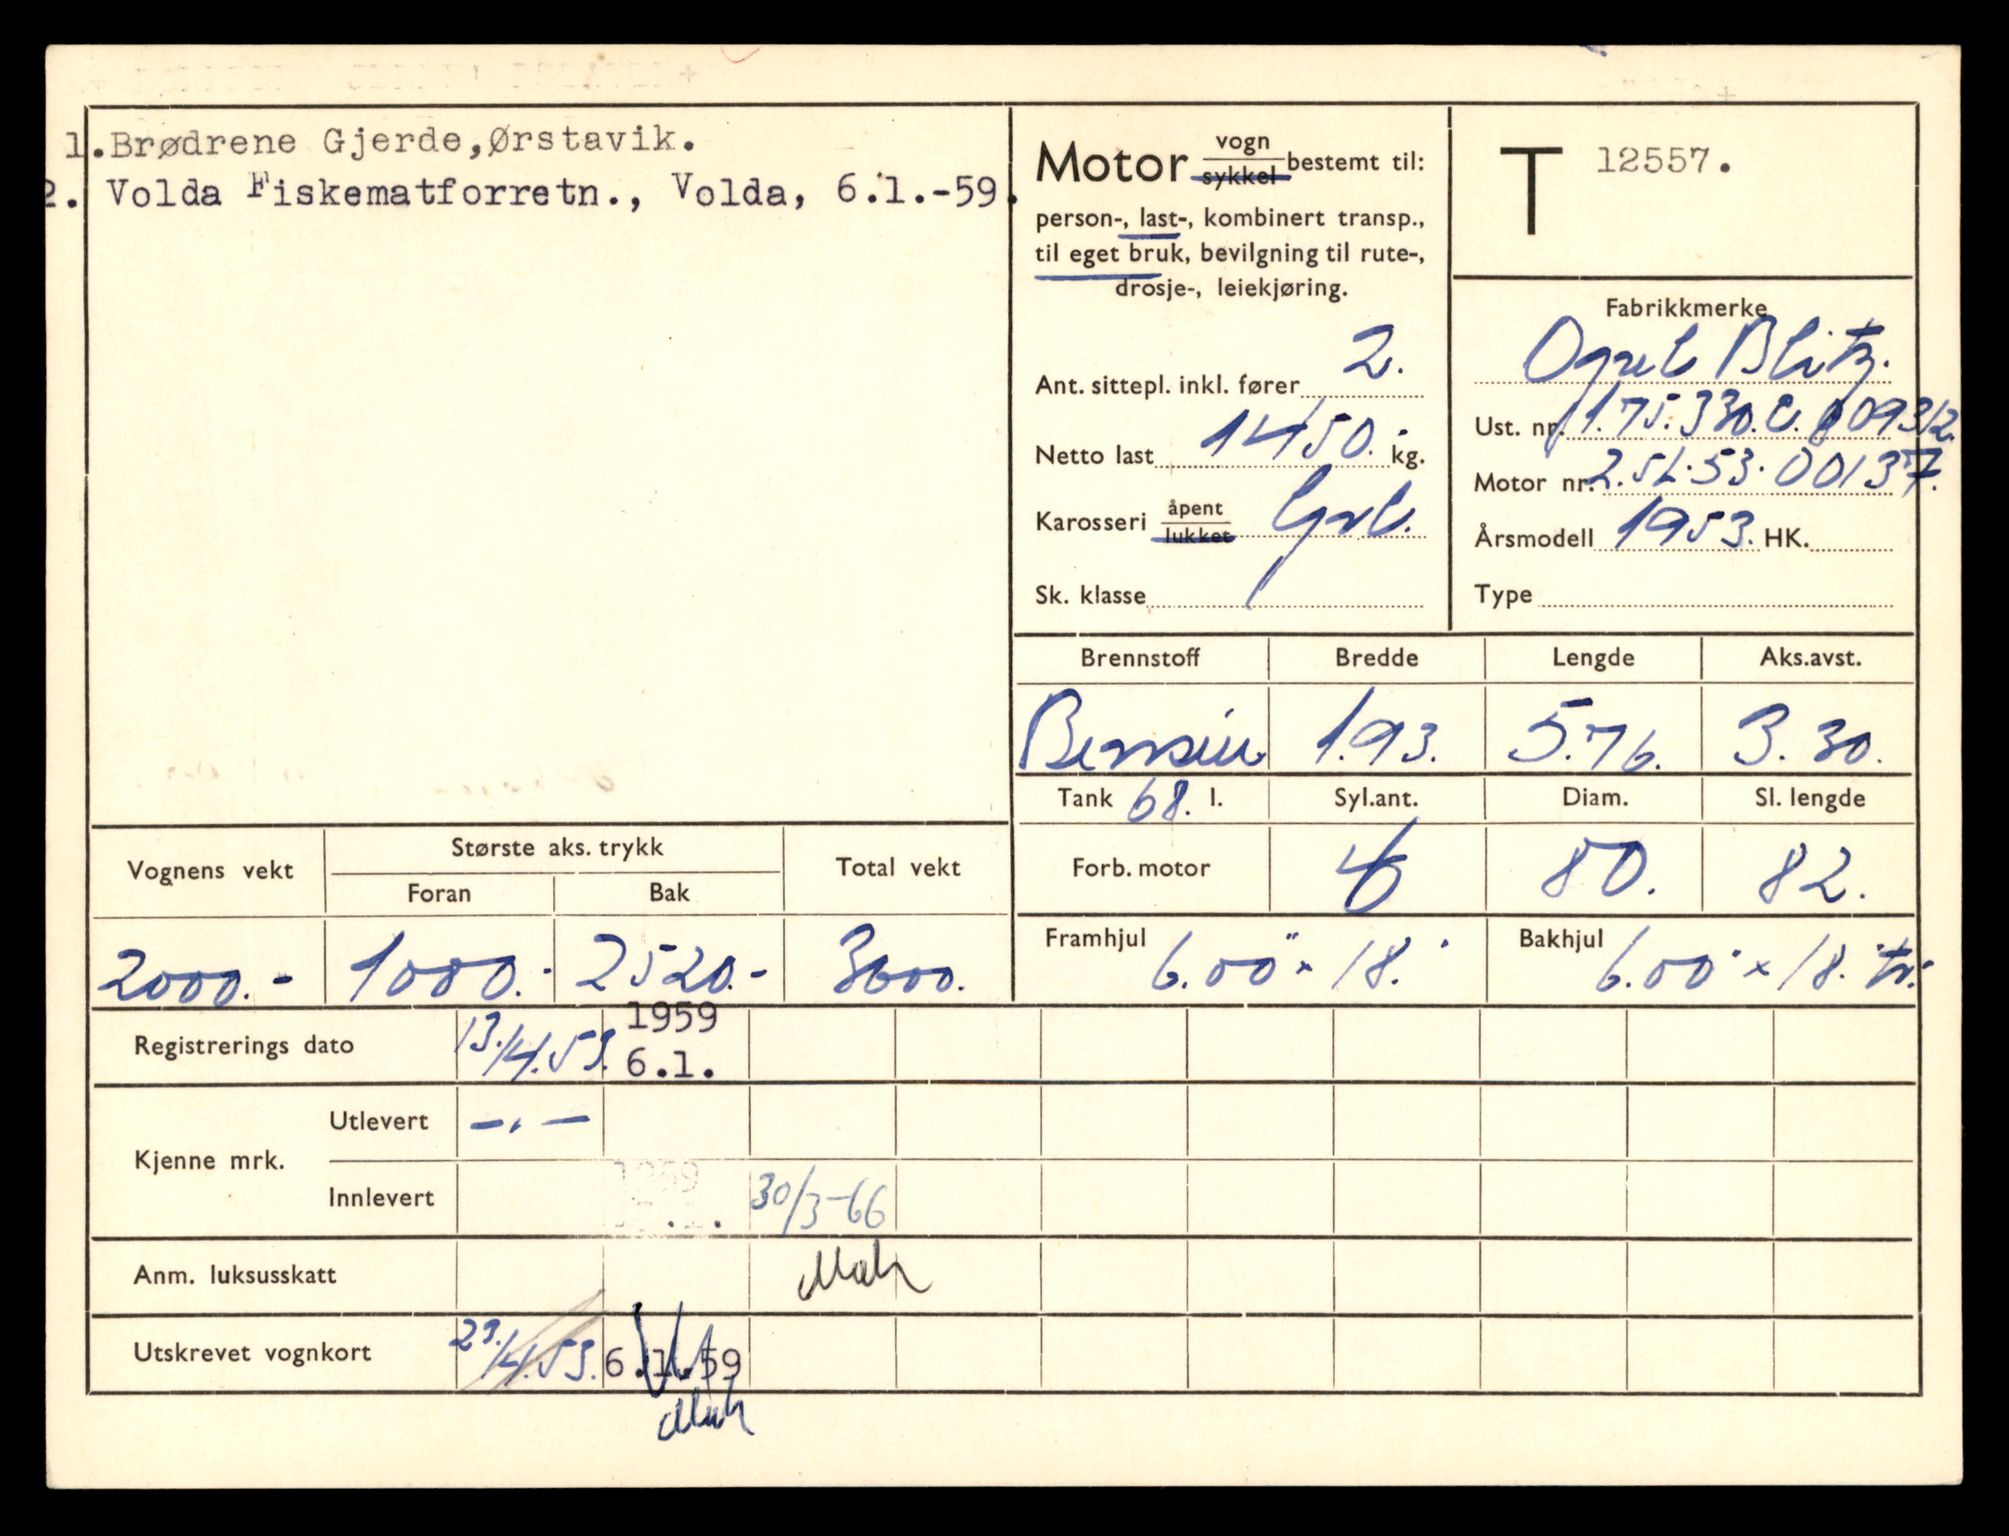 1.Brødrene Gjerde,Ørstavik.
2. Volda Fiskematforretn., Volda, 6.1.-59.
Motor vogn sykkel bestemt til:
person-, last-, kombinert transp.,
til eget bruk, bevilgning til rute-,
drosje-, leiekjøring.
Ant. sittepl. inkl. fører 2.
Netto last 1450.- kg.
Karosseri åpent lukket
Sk. klasse
T 12557.
Fabrikkmerke
Opel Blitz.
Ust. nr. 1.75.330.C. 009312.
Motor nr. 2.5L.53.00137.
Årsmodell 1953. HK.
Type
Brennstoff Bredde Lengde Aks.avst.
Bensin 1.93. 5.76. 3.30.
Tank 68. l. Syl.ant. Diam. Sl. lengde
Forb. motor 6 80. 82.
Framhjul 6.00" x 18." Bakhjul 6.00" x 18."
Vognens vekt Største aks. trykk Total vekt
Foran Bak
2000.- 1000.- 2520.-
Registrerings dato 13./4.53. 1959 6.1.
Kjenne mrk. Utlevert -.-
Innlevert 30/3-66
Anm. luksusskatt
Utskrevet vognkort 29./4.53. 6.1.59